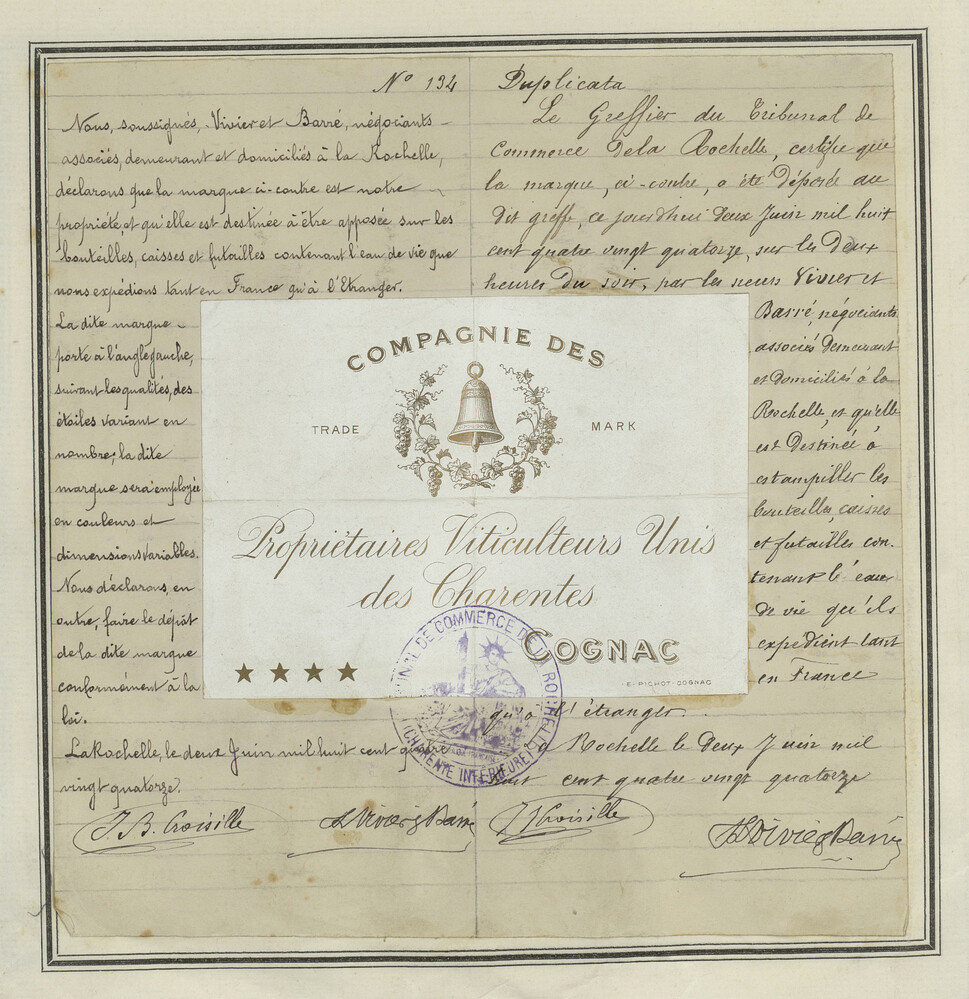 Nº 194
Nous, soussignés, Vivier et Barré, négociants
associés, demeurant et domiciliés à la Rochelle,
déclarons que la marque ci-contre est notre
propriété, et qu'elle est destinée à être apposée sur les
bouteilles, caisses et futailles contenant l'eau de vie que
nous expédions tant en France qu'à l'Etranger.
La dite marque
porte à l'angle gauche,
suivant les qualités, des
étoiles variant en
nombre; la dite
marque sera employée
en couleurs et
dimensions variables.
Nous déclarons, en
outre, faire le dépôt
de la dite marque
conformément à la
loi.
La Rochelle, le deux Juin mil huit cent quatre
vingt quatorze.
J. B. Croisille
Vivier & Barré
Duplicata
Le Greffier du Tribunal de
Commerce de la Rochelle, certifie que
la marque, ci-contre, a été déposée au
dit greffe, ce jourd'hui deux Juin mil huit
cent quatre vingt quatorze, sur les deux
heures du soir, par les sieurs Vivier et
Barré, négociants
associés demeurant
et domiciliés à la
Rochelle, et qu'elle
est destinée à
estampiller les
bouteilles, caisses
et futailles con-
tenant l'eau
de vie qu'ils
expédient tant
en France
qu'à l'étranger.
La Rochelle le deux Juin mil
huit cent quatre vingt quatorze
Croisille
Vivier & Barré
COMPAGNIE DES
TRADE MARK
Propriétaires Viticulteurs Unis
des Charentes
COGNAC
E. PICHOT-COGNAC
TRIBUNAL DE COMMERCE DE LA ROCHELLE
(CHARENTE INFÉRIEURE)